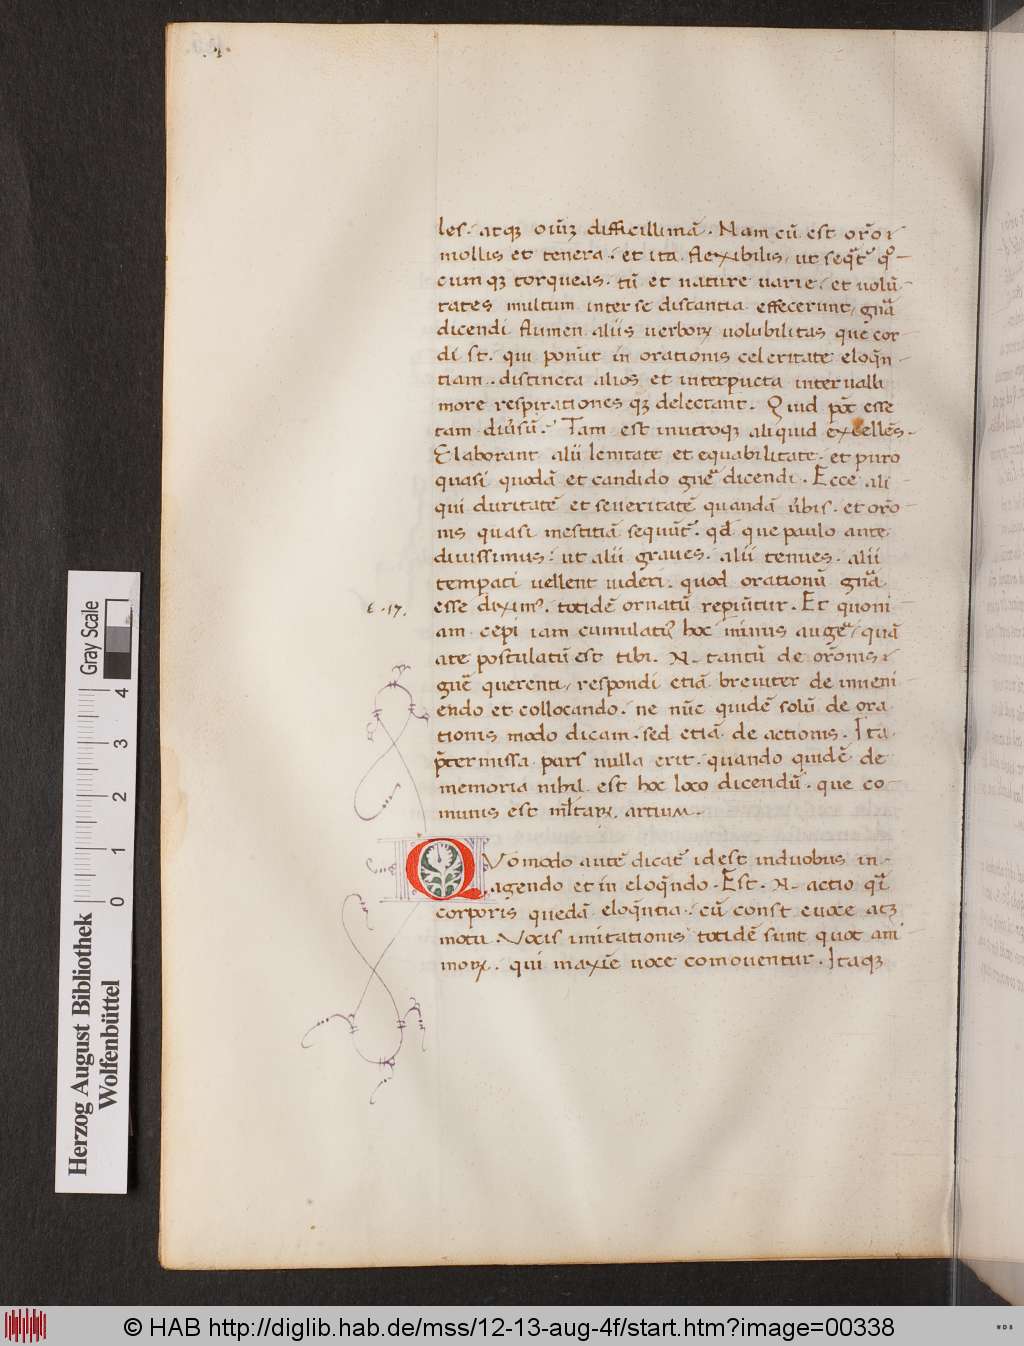 les. atqꝫ oiū̃ꝫ difficillimā. Nam cū est or̃o
mollis et tenera. et ita flexibilis, ut seqt̃ qͦ-
cum qꝫ torqueas. tū et nature varie. et volū
tates multum inter se distantia effecerunt, gñ̃a
dicendi flumen aliis verboꝝ volubilitas que cor
di st̃. qui ponũt in orationis celeritate eloq̃n
tiam. distincta alios et interpũcta intervalli
more respirationes qꝫ delectant. Quid põt esse
tam div̾sũ. Tam est inutroqꝫ aliquid excellēs.
Elaborant alii lenitate et equabilitate. et puro
quasi quodā et candido gñe dicendi. Ecce ali
qui duritatē et severitatē quandā v̾bis. et or̃o
nis quasi mestitiā sequũt̃. qd̃ que paulo ante
divissimus. ut alii graves. alii tenues. alii
temp̱ati vellent videri. quod orationū gñ̃a
esse diximꝰ. totidē ornatū repiũtur. Et quoni
6.17.
am cepi iam cumulatiꝰ hoc minus augẽ, quā
ate postulatū est tibi. N. tantū de or̃onis
gñe querenti, respondi etiā breviter de inveni
endo et collocando. ne nūc quidē solū de ora
tionis modo dicam. sed etiā de actionis. Ita
p̃termissa pars nulla erit. quando quidē de
memoria nihil est hoc loco dicendū. que co
munis est mľtaꝝ artium.
QVomodo autē dicat̃ id est induobus in
agendo et in eloq̃ndo. Est. N. actio q̃i
corporis quedā eloq̃ntia. cū const̃ e voce atqꝫ
motu. Vocis imitationis totidē sunt quot ani
moꝝ. qui maxīe voce comoventur. Itaqꝫ
Gray Scale
0 1 2 3 4
Herzog August Bibliothek
Wolfenbüttel
© HAB http://diglib.hab.de/mss/12-13-aug-4f/start.htm?image=00338